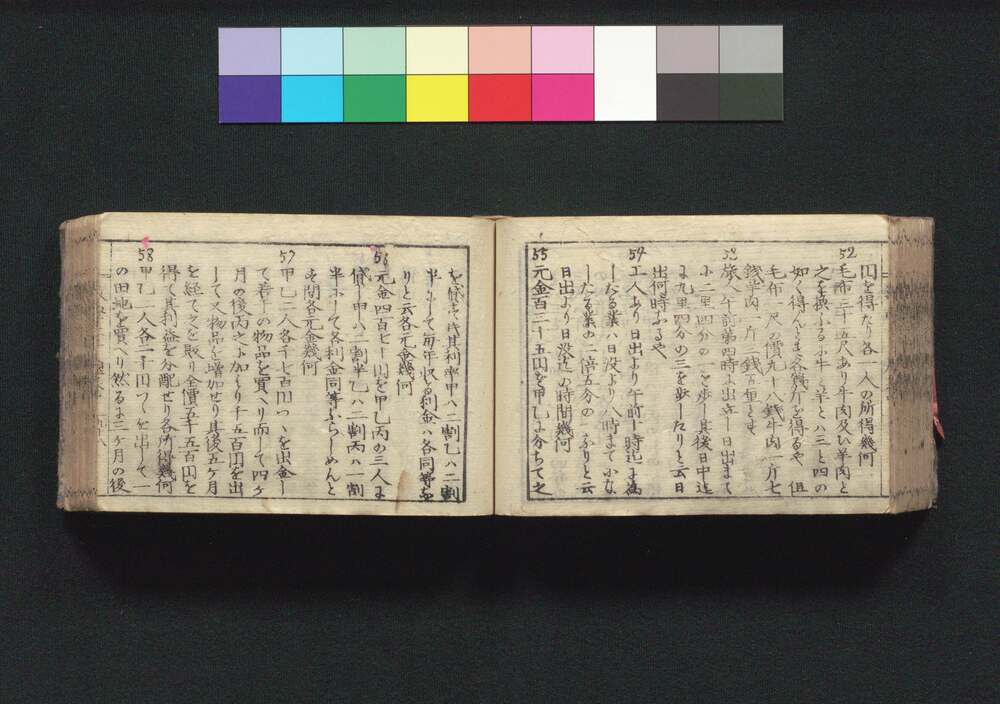 円を得たり各一人の所得幾何
52
毛布二十五尺あり牛肉及ひ羊肉と
之を換ふるに牛と羊とハ三と四の
如く得んトす各幾斤を得るや但
毛布一尺の價九十八錢牛肉一斤七
錢羊肉一斤
旅人午前第四時より出立し日出まて
に二里四分の一を歩し其後日中迄
に九里四分の三を歩したりと云日
出何時なるや
54
工人あり日出より午前十時迄に為
したる業ハ日没より八時まてにな
したる業の一倍五分の一なりと云
日出より日没迄の時間幾何
55
元金百三十五円を甲乙に分ちて之
を貸して其利率甲ハ二割乙ハ二割
半にして毎年収むる利金ハ各同等な
りと云各元金幾何
56
元金四百七十円を甲乙丙の三人に
貸し甲ハ一割半乙ハ二割丙ハ二割
半にして各利金同等ならしめんと
す問各元金幾何
57
甲乙二人各千七百円つゝを出金し
て若干の物品を買へり而して四ヶ
月の後丙之に加ハり千五百円を出
して又物品を増加せり其後五ヶ月
を經て之を販り金價五千五百円を
得て其利益を分配せり各所得幾何
58
甲乙二人各二千円つゝを出して一
の田地を買へり然るに三ヶ月の後